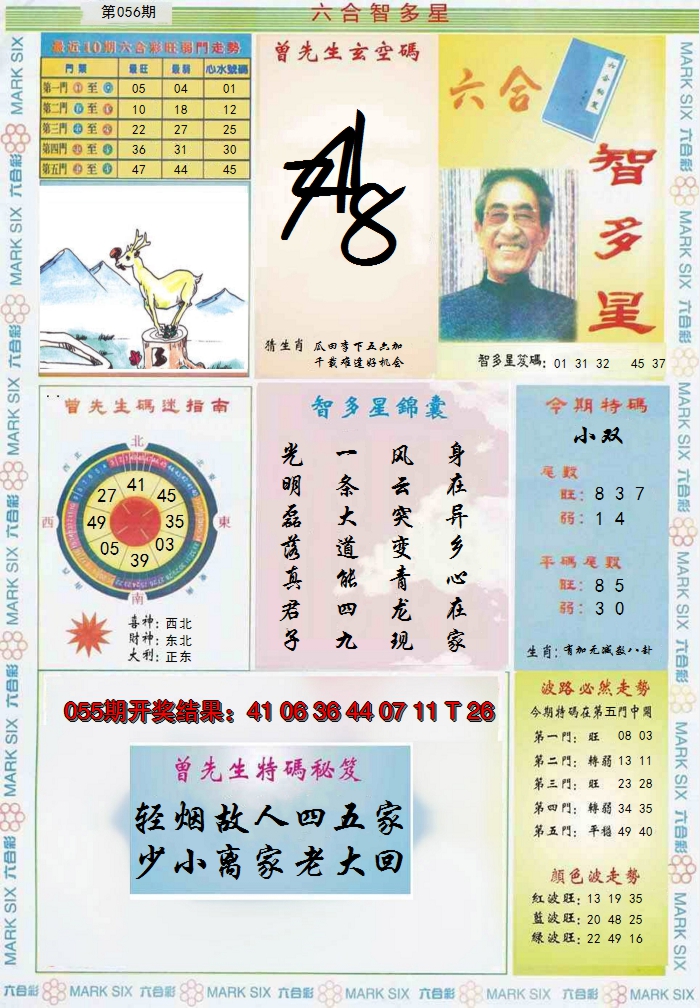 第056期
六合智多星
最近10期六合彩旺弱門走勢
門類 最旺 最弱 心水號碼
第一門 至 05 04 01
第二門 至 10 18 12
第三門 至 22 27 25
第四門 至 36 31 30
第五門 至 47 44 45
曾先生玄空碼
猜生肖 瓜田李下五六加
千载难逢好机会
六合
智多星
智多星笈碼: 01 31 32 45 37
曾先生碼迷指南
北
西
東
南
41
45
35
03
39
05
49
27
喜神: 西北
財神: 东北
大利: 正东
智多星錦囊
身在异乡心在家
风云突变青龙现
一条大道能四九
光明磊落真君子
今期特碼
小双
尾數
旺: 8 3 7
弱: 1 4
平碼尾數
旺: 8 5
弱: 3 0
生肖: 有加无减数八卦
055期开奖结果: 41 06 36 44 07 11 T 26
曾先生特碼秘笈
轻烟故人四五家
少小离家老大回
波路必然走勢
今期特碼在第五門中開
第一門: 旺 08 03
第二門: 轉弱 13 11
第三門: 旺 23 28
第四門: 轉弱 34 35
第五門: 平穩 49 40
顏色波走勢
紅波旺: 13 19 35
藍波旺: 20 48 25
綠波旺: 22 49 16
MARK SIX 六合彩 MARK SIX 六合彩 MARK SIX 六合彩 MARK SIX 六合彩